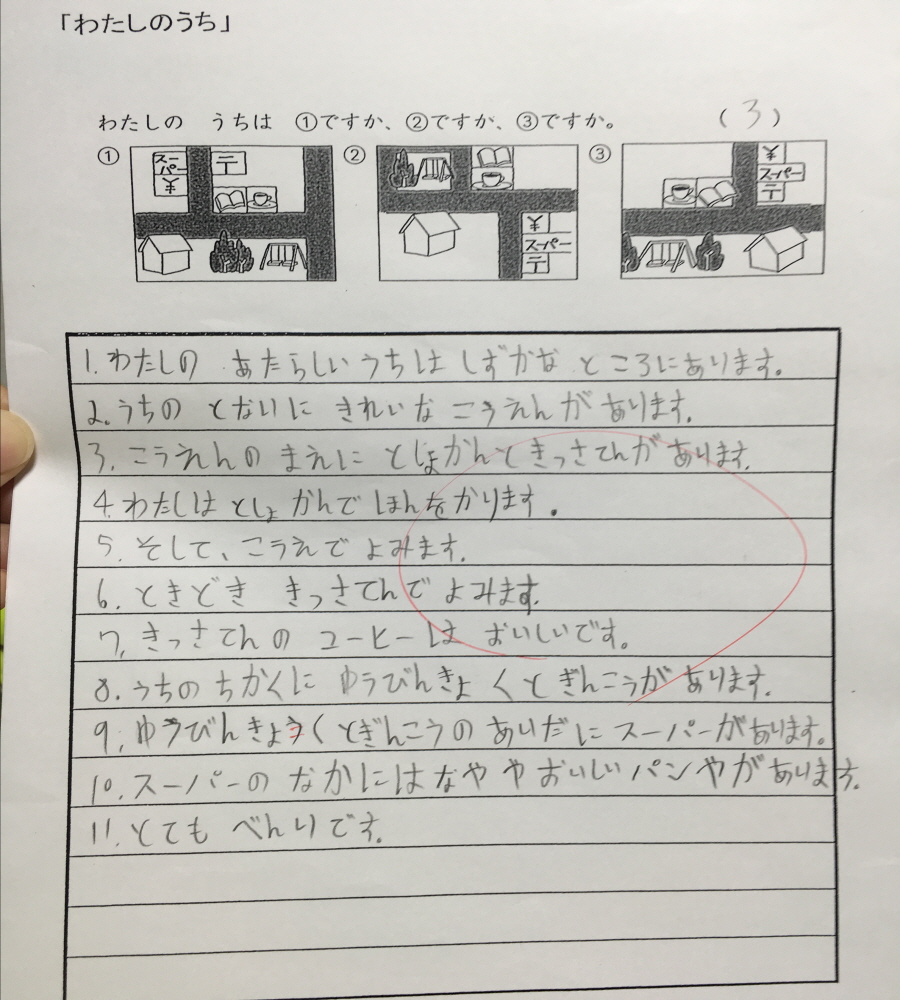 「わたしのうち」
わたしの うちは ①ですか、②ですか、③ですか。 (3)
① スーパー ¥ 〒
② ¥ スーパー 〒
③ ¥ スーパー 〒
1. わたしの あたらしい うちは しずかな ところにあります。
2. うちの とないに きれいな こうえんが あります。
3. こうえんの まえに としょかんと きっさてんが あります。
4. わたしは としょかんで ほんを かります。
5. そして、こうえで よみます。
6. ときどき きっさてんで よみます。
7. きっさてんの コーヒーは おいしいです。
8. うちの ちかくに ゆうびんきょくと ぎんこうが あります。
9. ゆうびんきょうくとぎんこうの あいだに スーパーが あります。
10. スーパーの なかに はなやや おいしい パンやが あります。
11. とても べんりです。